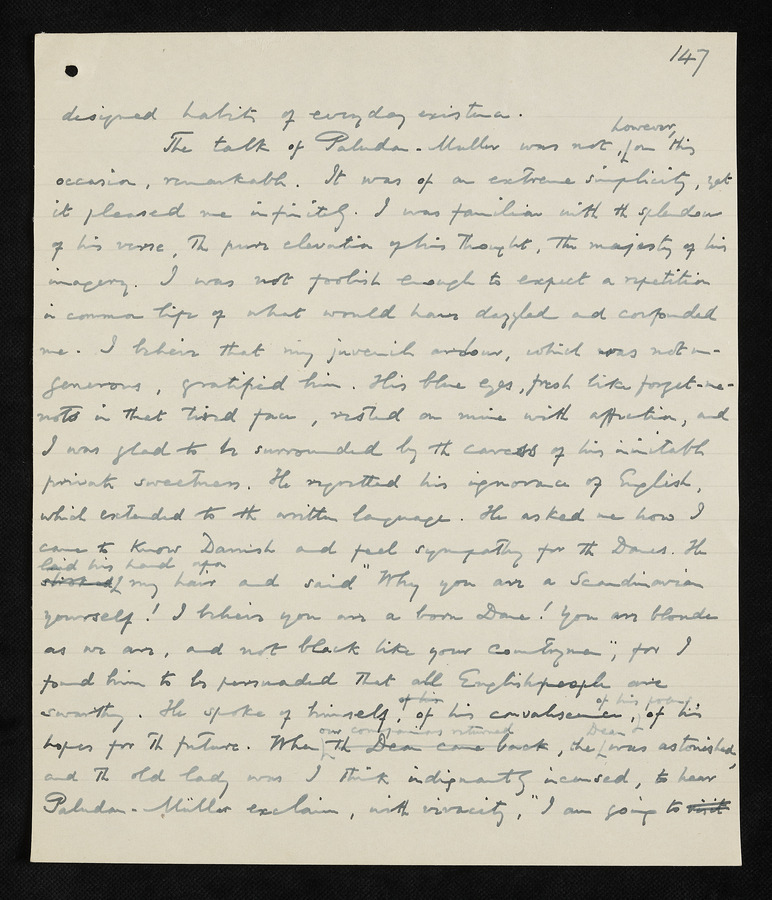 147
designed habits of everyday existence.
The talk of Paludan-Muller was not, however, on this
occasion, remarkable. It was of an extreme simplicity, yet
it pleased me infinitely. I was familiar with the splendour
of his verse, the pure elevation of his thought, the majesty of his
imagery. I was not foolish enough to expect a repetition
in common life of what would have dazzled and confounded
me. I believe that my juvenile ardour, which was not un-
generous, gratified him. His blue eyes, fresh like forget-me-
nots in that tired face, rested on mine with affection, and
I was glad to be surrounded by the caress of his inimitable
private sweetness. He regretted his ignorance of English,
which extended to the written language. He asked me how I
came to know Danish and feel sympathy for the Danes. He
laid his hand upon
stroked my hair and said "Why you are a Scandinavian
yourself! I believe you are a born Dane! You are blonde
as we are, and not black like your countrymen", for I
found him to be persuaded that all Englishpeople are
swarthy. He spoke of himself, of his convalescence, of his
of his of his poems,
hopes for the future. When the Dean came back, he was astonished,
our companions returned Dean
and the old lady was I think indignantly incensed, to hear
Paludan-Müller exclaim, with vivacity, "I am going to visit